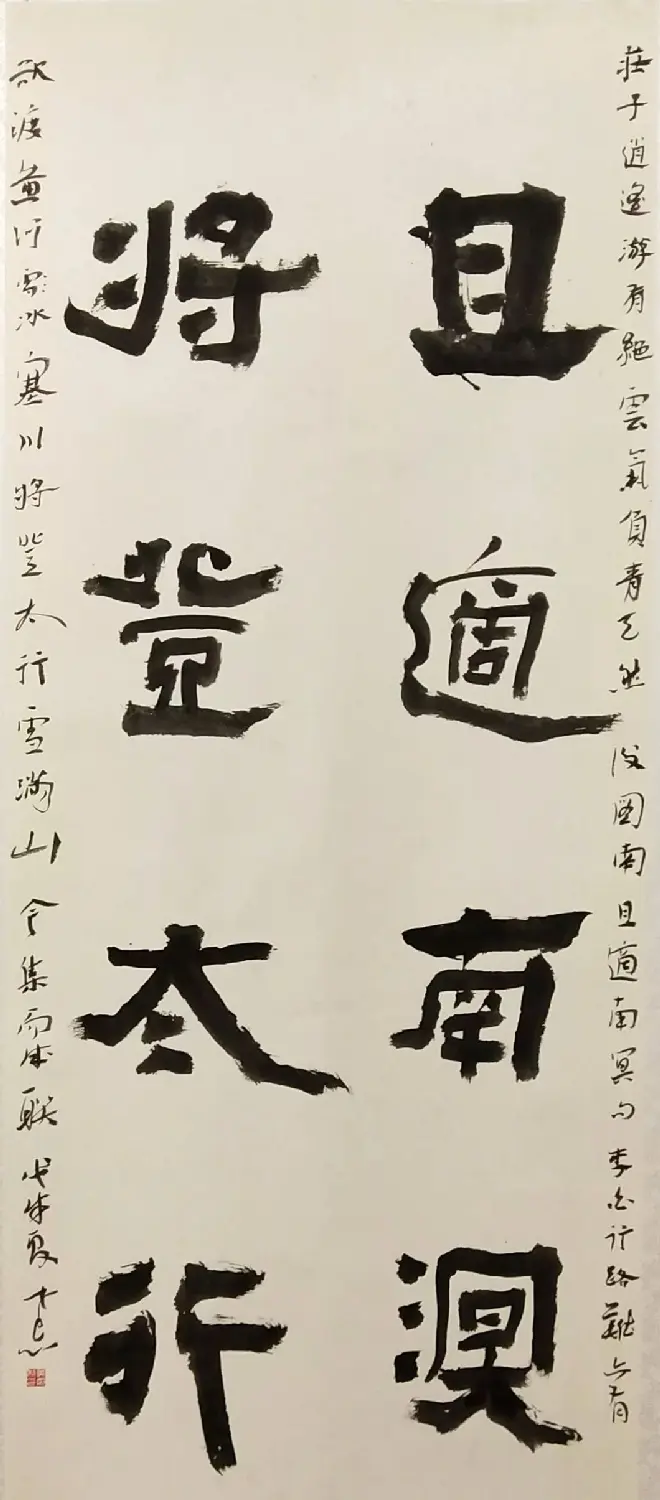 莊子逍遙游有絕雲氣負青天然後圖南且適南冥句李白行路難亦有
且適南溟
將登太行
欲渡黃河冰塞川將登太行雪滿山今集而成聯戊戌夏